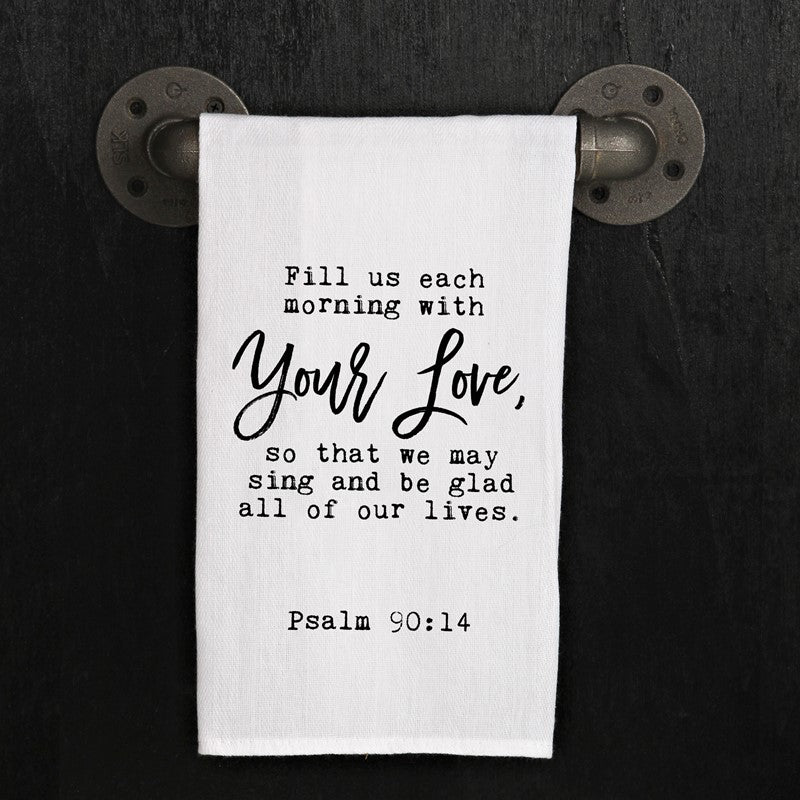 Fill us each
morning with
Your Love,
so that we may
sing and be glad
all of our lives.
Psalm 90:14